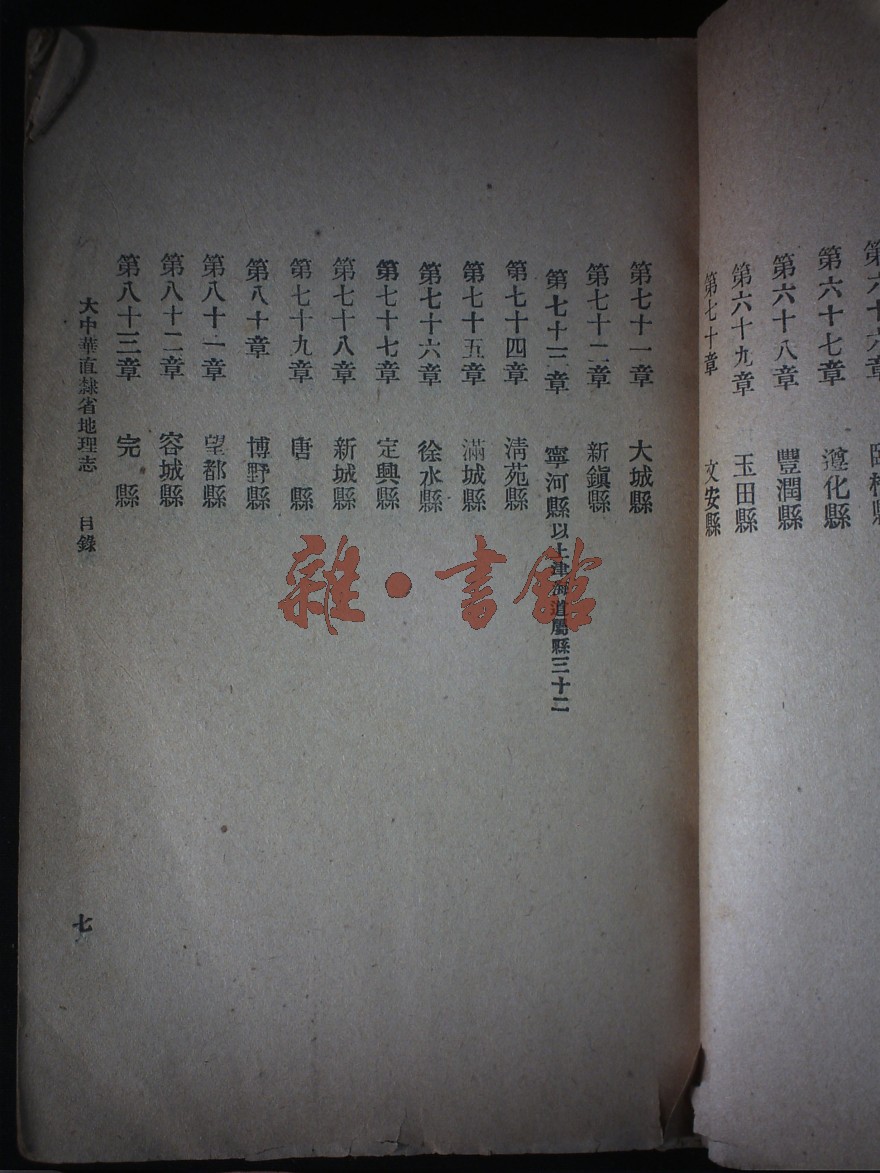 第六十七章　遵化縣
第六十八章　豐潤縣
第六十九章　玉田縣
第七十章　文安縣
第七十一章　大城縣
第七十二章　新鎮縣
第七十三章　寧河縣以上津海道屬縣三十二
第七十四章　清苑縣
第七十五章　滿城縣
第七十六章　徐水縣
第七十七章　定興縣
第七十八章　新城縣
第七十九章　唐　縣
第八十章　博野縣
第八十一章　望都縣
第八十二章　容城縣
第八十三章　完　縣
大中華直隸省地理志　目錄
七
雜·書館